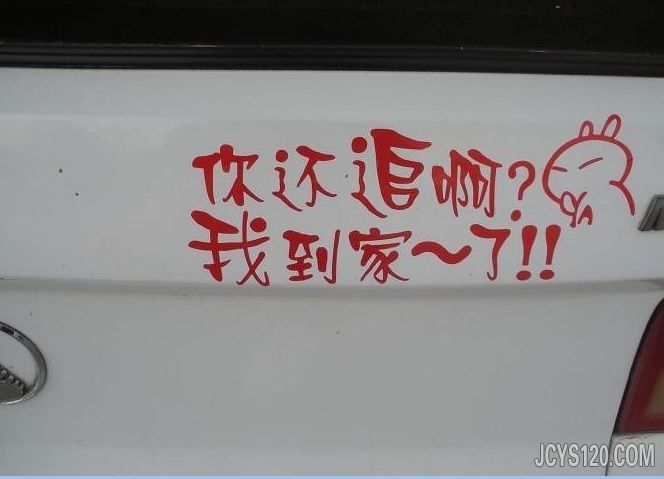 你还追啊?
我到家～了!!
JCYS120.COM